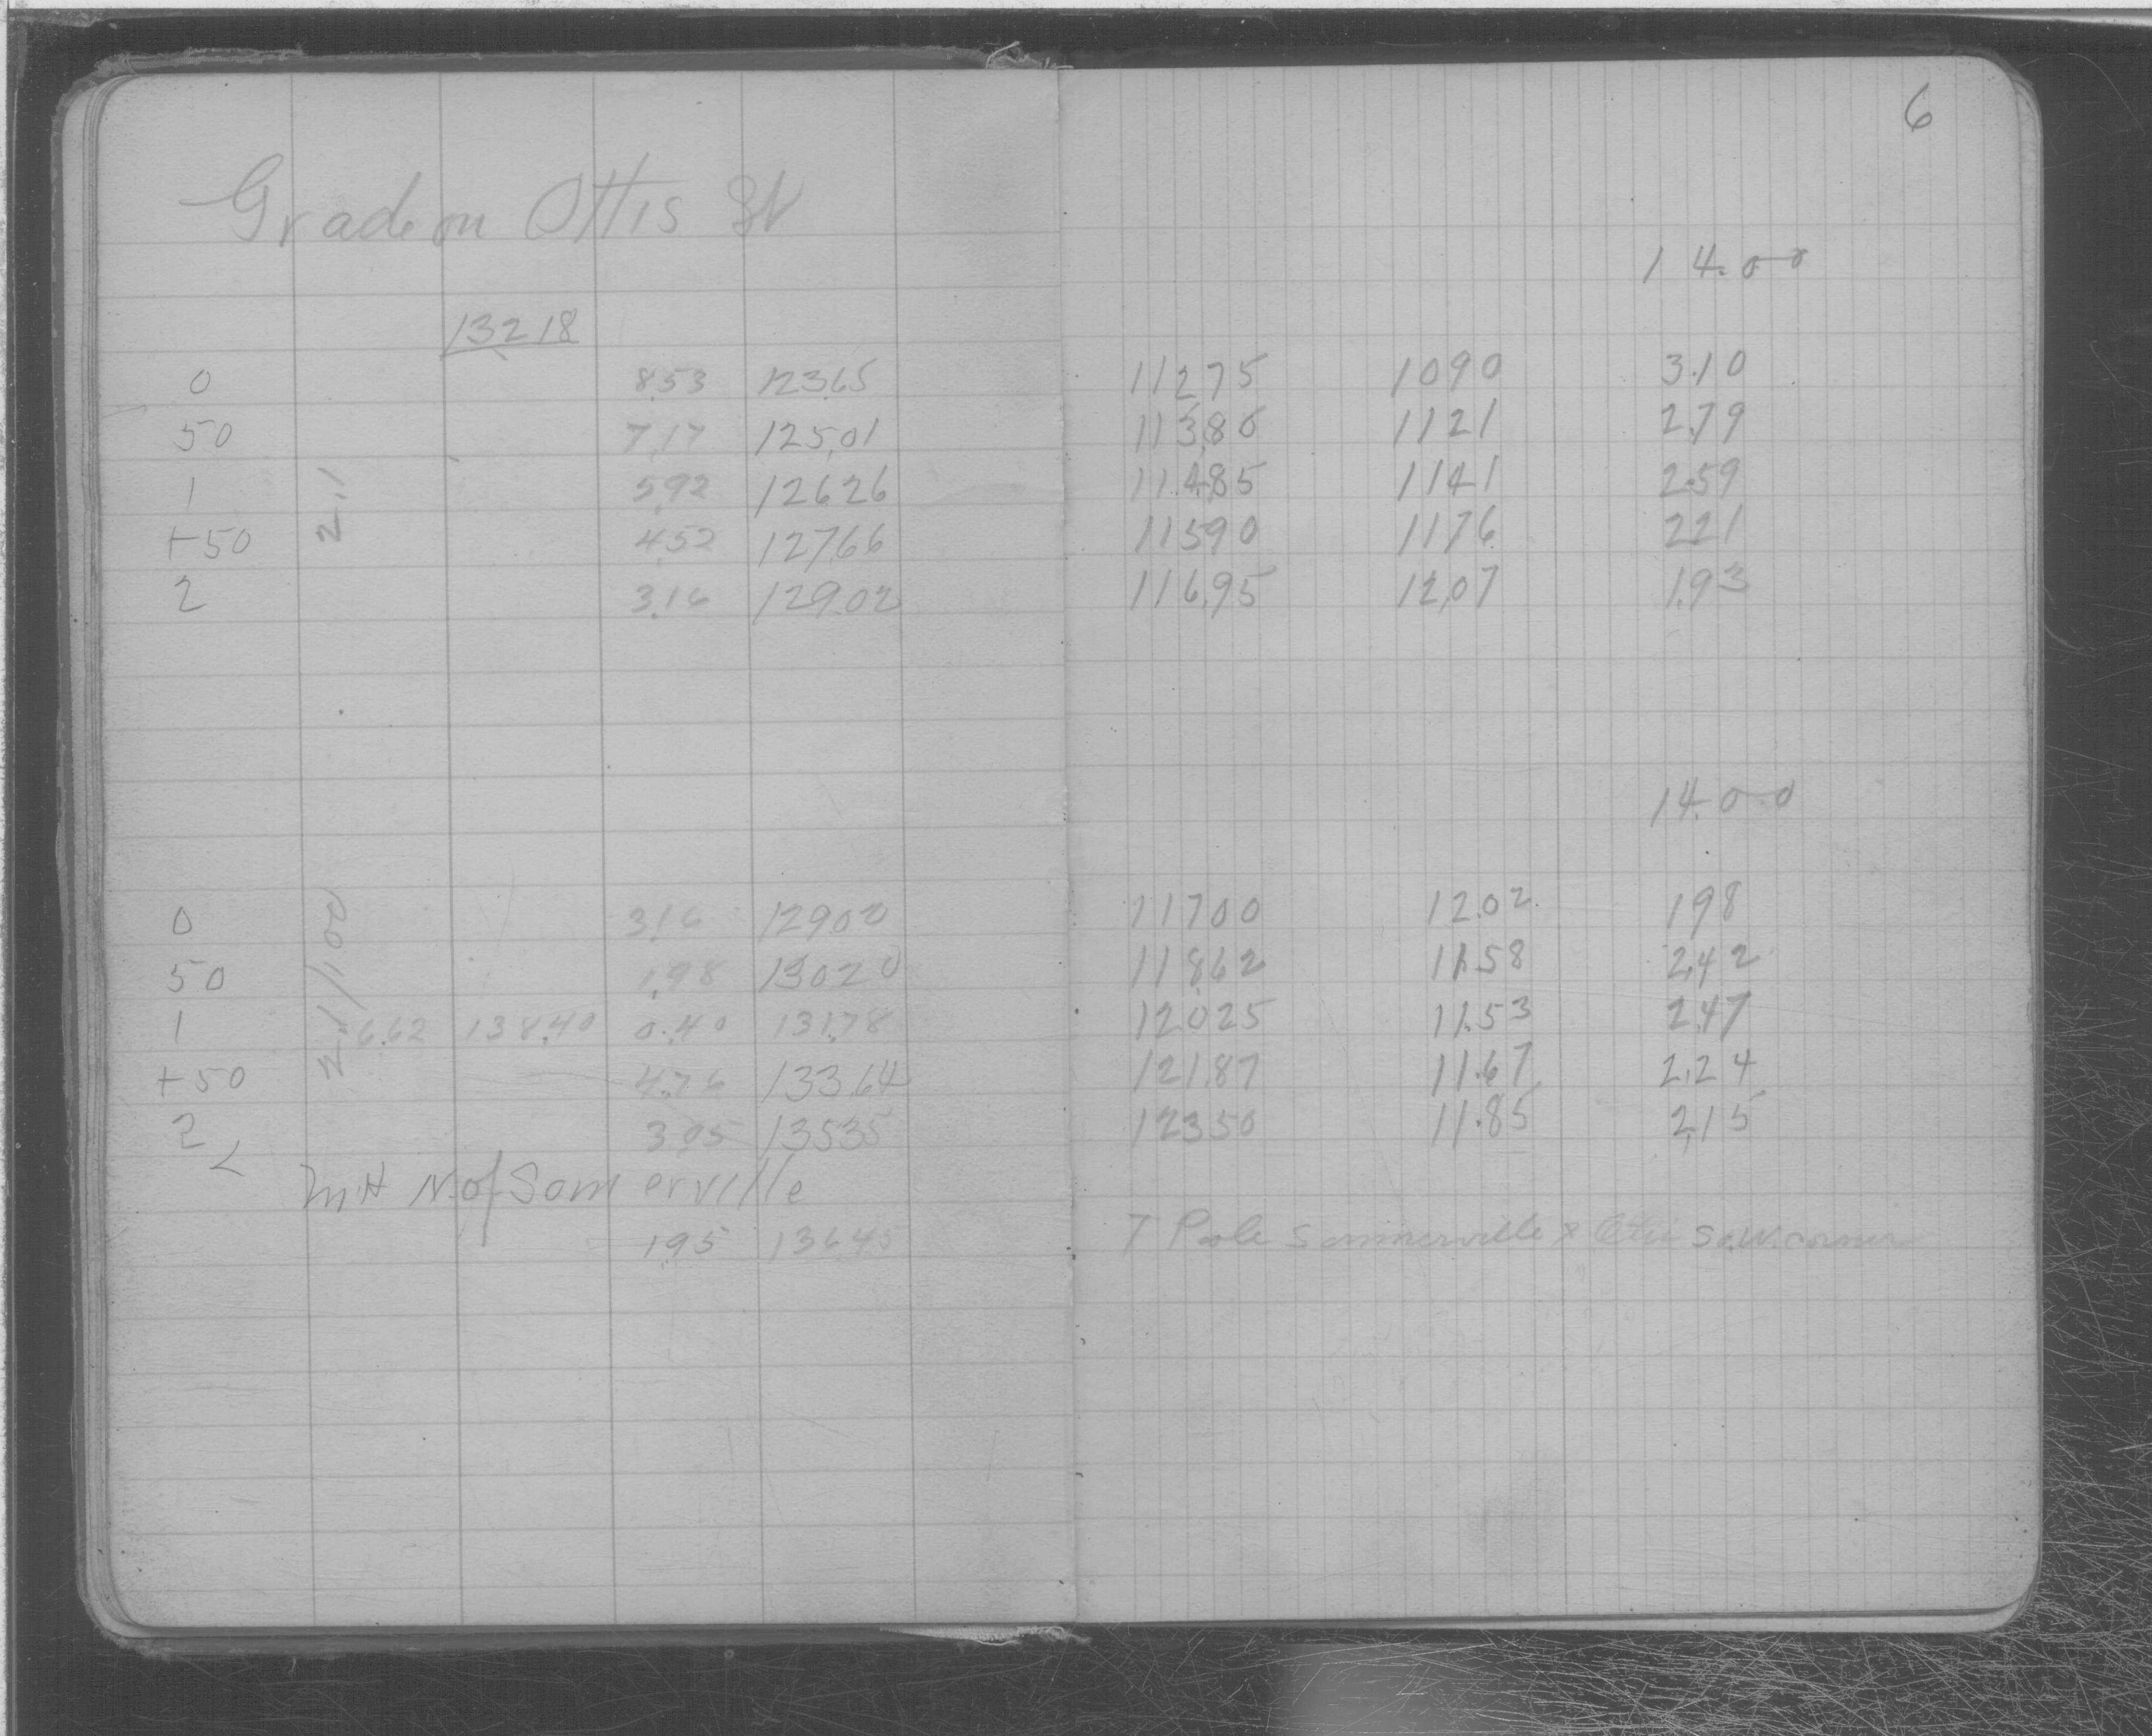 6
Grade on Ottis St
14.00
132 18
0 8.53 123.65 112.75 1090 3.10
50 7.17 125.01 113.80 1121 2.79
1 5.92 126.26 114.85 1141 2.59
+50 4.52 127.66 115.90 1176 2.21
2 3.16 129.02 116.95 12.07 1.93
2.1
14.00
0 3.16 129.02 117.00 12.02 1.98
50 1.98 130.20 118.62 11.58 2.42
1 6.62 138.40 0.40 131.78 120.25 11.53 2.47
+50 4.76 133.64 121.87 11.67 2.24
2 3.05 135.35 123.50 11.85 2.15
2.1/1.00
MH N. of Somerville
1.95 136.45 T Pole Sommerville & Otis So.W. corner